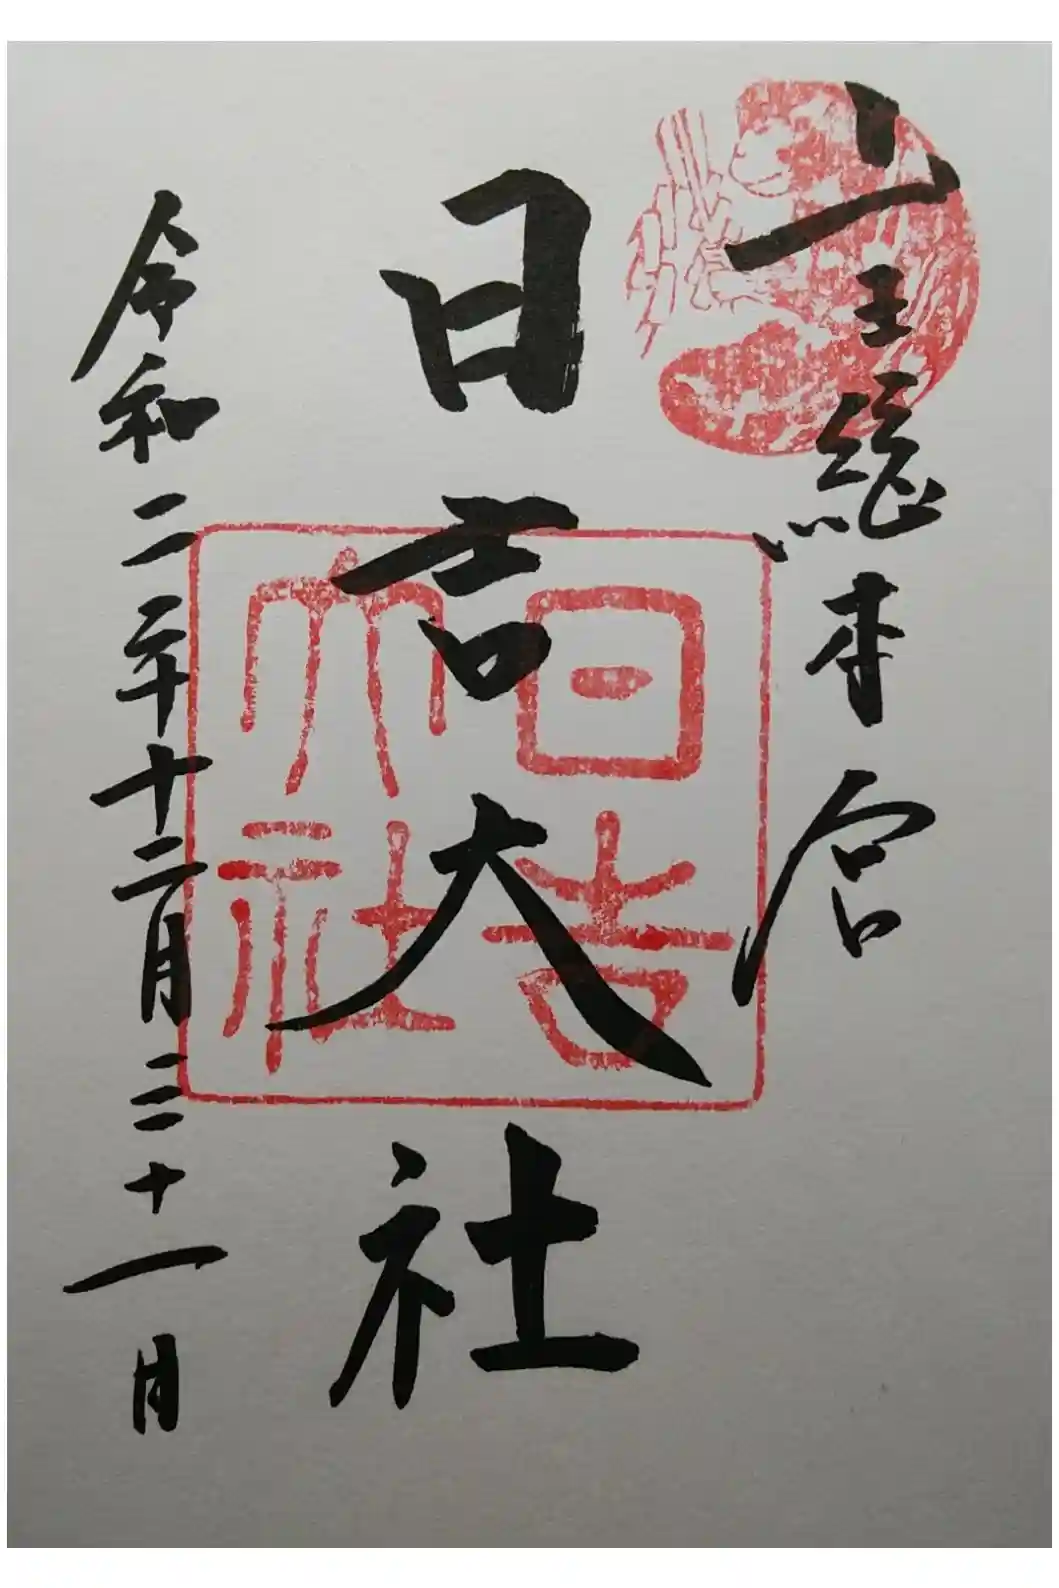 山王総本宮
日吉大社
令和二年十二月三十一日
日吉大社